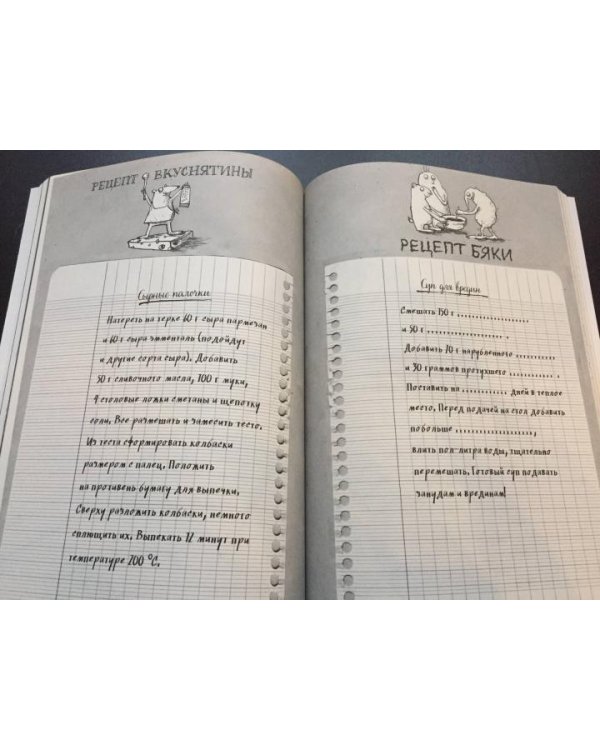 РЕЦЕПТ ВКУСНЯТИНЫ
Сырные палочки
Натереть на терке 60 г сыра пармезан
и 60 г сыра эмменталь (подойдут
и другие сорта сыра). Добавить
50 г сливочного масла, 200 г муки,
4 столовые ложки сметаны и щепотку
соли. Все размешать и замесить тесто.
Из теста сформировать колбаски
размером с палец. Положить
на противень бумагу для выпечки.
Сверху разложить колбаски, немного
сплющить их. Выпекать 12 минут при
температуре 200 °C.
РЕЦЕПТ БЯКИ
Суп для вредин
Смешать 150 г ..................
и 50 г ....................
Добавить 70 г нарубленного ..........
и 30 граммов протухшего .............
Поставить на .......... дней в теплое
место. Перед подачей на стол добавить
побольше ...................,
влить пол-литра воды, тщательно
перемешать. Готовый суп подавать
занудам и врединам!